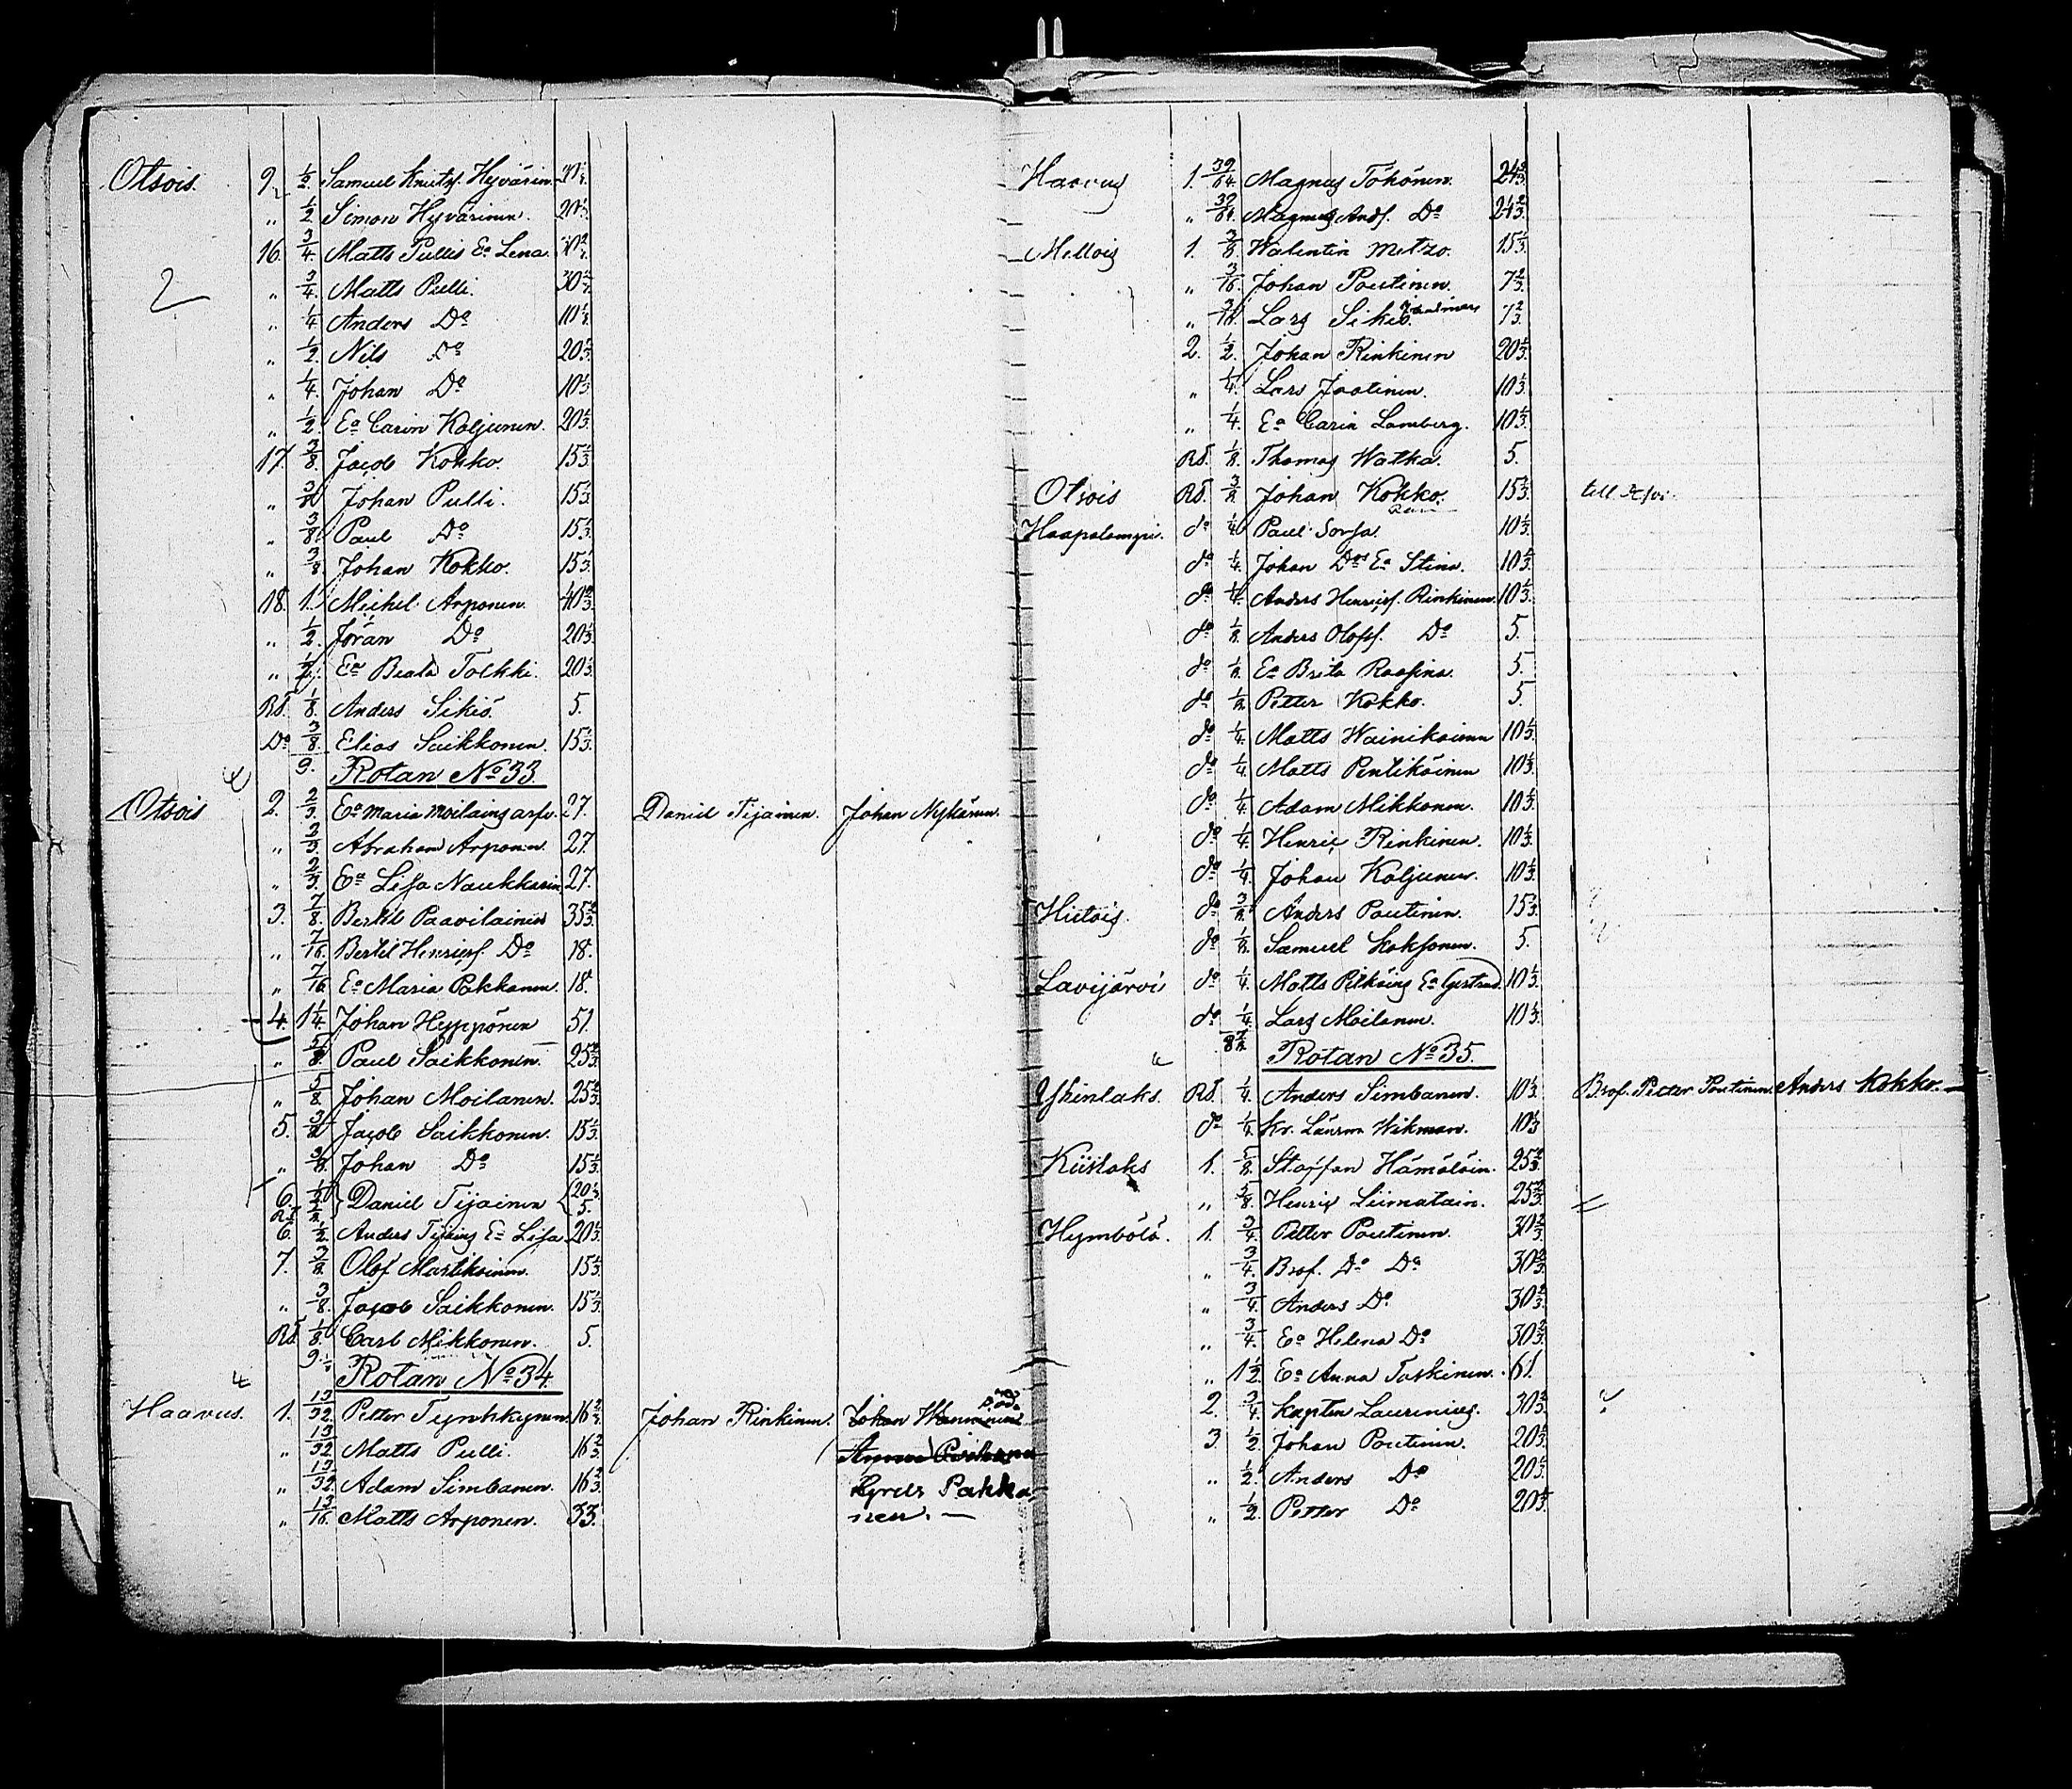 Otsois. 9. 1/2. Samuel Knutss. Hyvärin.
„ 1/2 Simon Hyvärinen. 20 1/3.
16. 3/4. Matts Pullis Ea Lena.
2
„ 3/4. Matts Pulli. 30 2/3.
„ 1/4 Anders Do 10 1/3.
„ 1/2. Nils Do 20 1/3.
„ 1/4. Johan Do 10 1/3.
„ 1/2. Ea Carin Koljunen. 20 1/3.
17. 3/8. Jacob Kokko. 15 1/3.
„ 3/8 Johan Pulli. 15 1/3.
„ 3/8. Paul Do 15 1/3.
„ 3/8. Johan Kokko. 15 1/3.
18. 1. Michel Arponen. 40 2/3.
„ 1/2. Jöran Do 20 1/3.
„ 1/2. Ea Beata Tolkki. 20 1/3.
Rå. 1/8. Anders Sikiö. 5.
Do 3/8. Elias Saikkonen. 15 1/3.
9. Rotan No 33.
Otsois 2. 2/3. Ea Maria Moilains arfv. 27. Daniel Tijainen. Johan Nykänen.
„ 2/3. Abraham Arponen. 27.
„ 2/3. Ea Lisa Naukkarin. 27.
3. 7/8. Bertil Paavilainen 35 2/3.
„ 7/16. Bertil Henricss. Do 18.
„ 7/16. Ea Maria Pakkanen. 18.
4. 1 1/4. Johan Hyppönen 51.
„ 5/8. Paul Saikkonen. 25 2/3.
„ 5/8. Johan Moilanen. 25 2/3.
5. 3/8 Jacob Saikkonen. 15 1/3.
„ 3/8. Johan Do 15 1/3.
6. 1/2 } Daniel Tijainen { 20 1/3.
Rå 1/8. 5.
6. 1/2. Anders Tijains Ea Lisa 20 1/3.
7. 3/8. Olof Martikainen. 15 1/3.
„ 3/8. Jacob Saikkonen. 15 1/3.
Rå. 1/8. Carl Mikkonen. 5.
9. Rotan No 34.
Haavus. 1. 13/32. Petter Tynkkynen. 16 2/3. Johan Rinkinen. Johan Wänninen
„ 13/32 Matts Pulli. 16 2/3.
„ 13/32 Adam Simbanen. 16 2/3. Pakka-
„ 13/16. Matts Arponen. 33. nen. —
Haavus 1. 39/64. Magnus Töhönen. 24 2/3.
„ 39/64. Magnus Andss. Do 24 2/3.
Mellois 1. 3/8 Walentin Metzo. 15 1/3.
„ 3/16. Johan Poutinen. 7 2/3.
„ 3/16. Lars Sikiö. 7 2/3.
2. 1/2. Johan Rinkinen 20 1/3.
„ 1/4. Lars Jaatinen. 10 1/3.
„ 1/4. Ea Carin Lamberg. 10 1/3.
Rå. 1/8. Thomas Watka. 5.
Otsois Rå 3/8. Johan Kokko. 15 1/3.
Haapalampi. do 1/4. Paul Sorsa. 10 1/3.
do 1/4. Johan Dos Ea Stina. 10 1/3.
do 1/4. Anders Henricss. Rinkinen. 10 1/3.
do 1/8. Anders Olofss. Do 5.
do 1/8. Ea Brita Raasina. 5.
do 1/8. Petter Kokko. 5
do 1/4. Matts Wainikainen 10 1/3.
do 1/4. Matts Pentikäinen 10 1/3.
do 1/4. Adam Mikkonen. 10 1/3.
do 1/4. Henric Rinkinen. 10 1/3.
do 1/4. Johan Koljunen. 10 1/3.
Hietois. do 3/8. Anders Poutinen. 15 1/3.
do 1/8. Samuel Koksonen. 5.
Lavijärvi do 1/4. Matts Pitkäins Ea Gertrud. 10 1/3.
do 1/4. Lars Moilanen. 10 1/3.
Rotan No 35.
Yhinlaks. Rå. 1/4. Anders Simbanen. 10 1/3. Brof. Petter Poutinen. Anders Kokko. —
do 1/4. Kr. Länsm Wikman. 10 1/3
Kiislaks 1. 5/8. Staffan Hämäläin. 25 2/3.
„ 5/8. Henric Liimatain. 25 2/3.
Hymbölä. 1. 3/4. Petter Poutinen. 30 2/3.
„ 3/4. Brof. Do Do 30 2/3.
„ 3/4. Anders Do 30 2/3.
„ 3/4. Ea Helena Do 30 2/3.
„ 1 1/2. Ea Anna Toskinen. 61.
2. 3/4. Kapten Laurenius. 30 2/3.
3. 1/2. Johan Poutinen. 20 1/3.
„ 1/2. Anders Do 20 1/3.
„ 1/2. Petter Do 20 1/3.